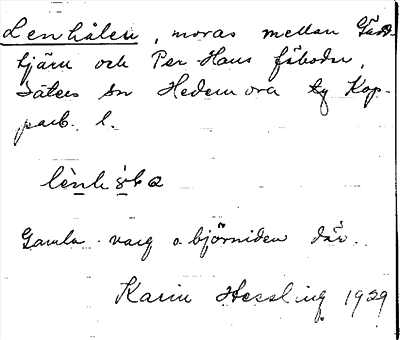 Lenhålen, moras mellan Gädd-
tjärn och Per-Hans fäbodar,
Säters sn Hedemora tg Kop-
parb. l.
Gamla varg o björniden där.
Karin Hessling 1929